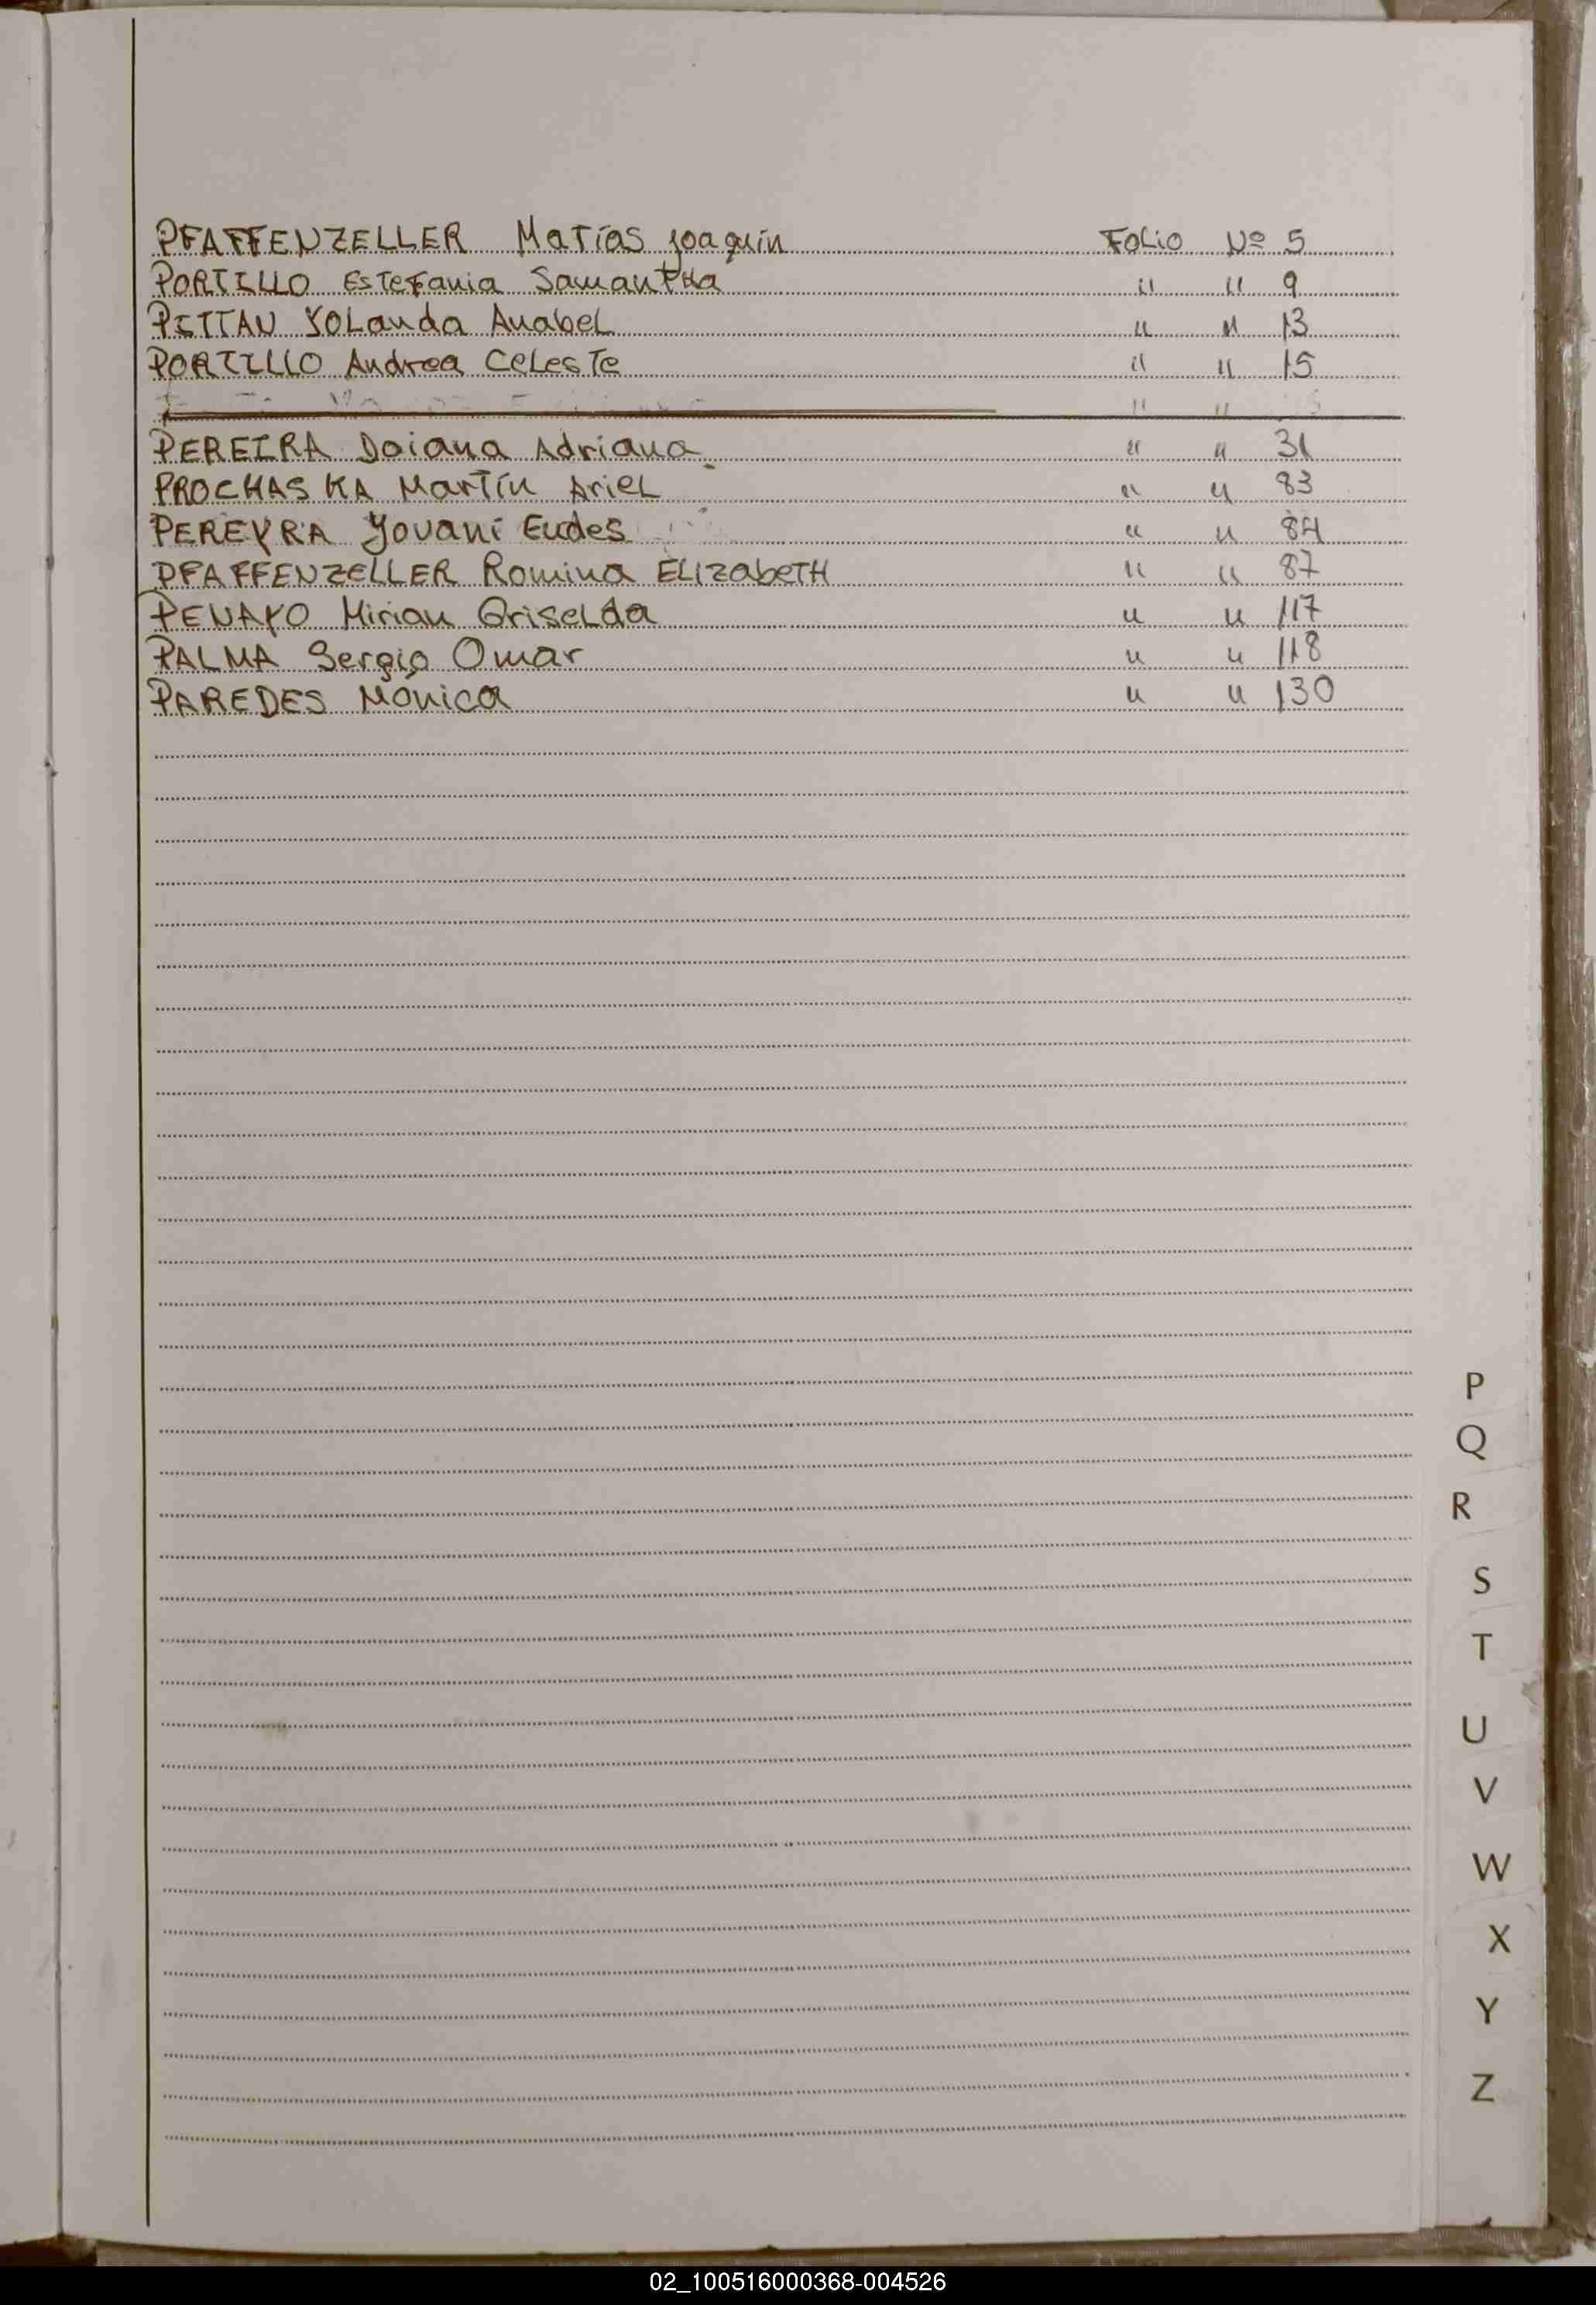 PFAFFENZELLER Matías Joaquín Folio Nº 5
PORTILLO Estefania Samantha " " 9
PITTAN YOLanda Anabel " " 13
PORTILLO Andrea Celeste " " 15
" "
PEREIRA Daiana Adriana. " " 31
PROCHASKA Martín Ariel " " 83
PEREYRA Yovani Eudes " " 84
PFAFFENZELLER Romina ELIzabeTH " " 87
PENAYO Mirian Griselda " " 117
PALMA Sergio Omar " " 118
PAREDES Mónica " " 130
P
Q
R
S
T
U
V
W
X
Y
Z
02_100516000368-004526